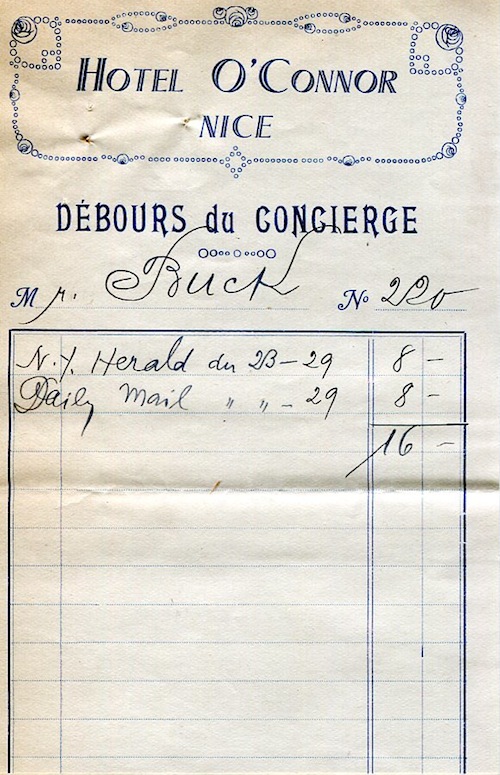 HOTEL O'CONNOR
NICE
DÉBOURS du CONCIERGE
Mr. Buck No 220
N.Y. Herald du 23 - 29 8 -
Daily Mail " " - 29 8 -
16 -